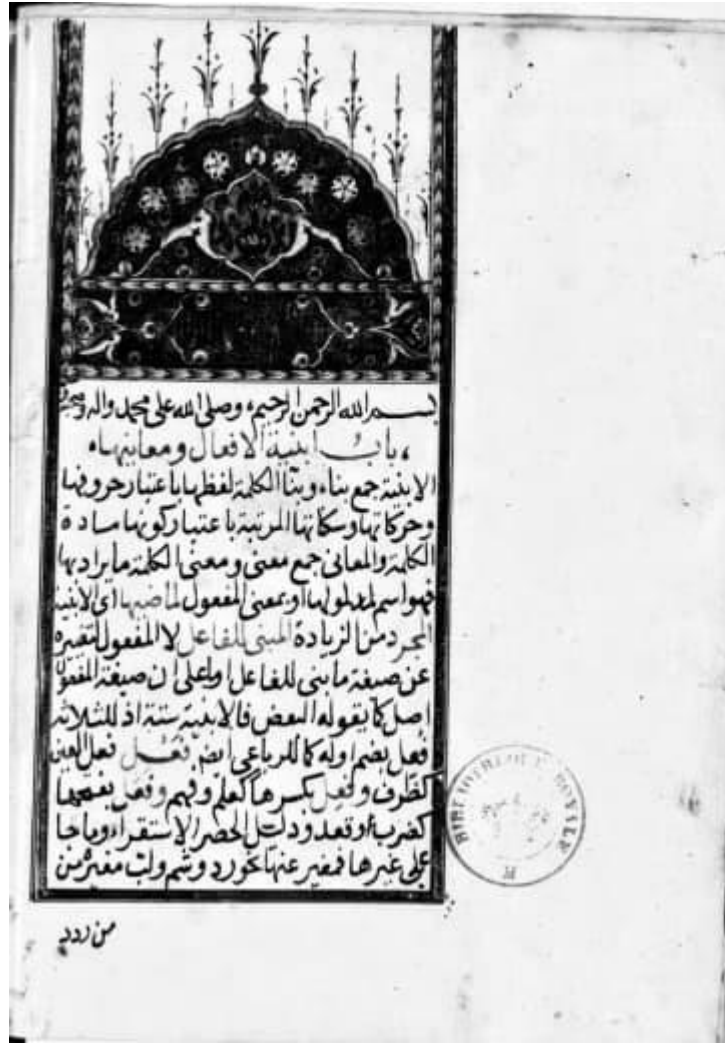 بسم الله الرحمن الرحيم وصلى الله على محمد واله وصحبه
باب ابنية الافعال ومعانيها
الابنية جمع بناء وبنا الكلمة لفظها باعتبار حروفها
وحركاتها وسكاتها المرتبة باعتبار كونها مادة
الكلمة والمعانى جمع معنى ومعنى الكلمة ما يراد بها
فهو اسم لمدلولها او بمعنى المفعول لماضيها اى الابنية
المجرد من الزيادة المبنى للفاعل لا المفعول لتغيره
عن صيغة ما بنى للفاعل او على ان صيغة المفعول
اصل كما يقوله البعض فالابنية ستة اذ للثلاثة
فعل بضم اوله كما للرباعى ايضا فعلل فعل العين
كظرف وفعل بكسرها كعلم وفهم وفعل بفتحها
كضرب او قعد ودليل الحصر الاستقرآء وما جا
على غيرها فمغير عنها نحو رد وشم ولب مغيره من
من ردد